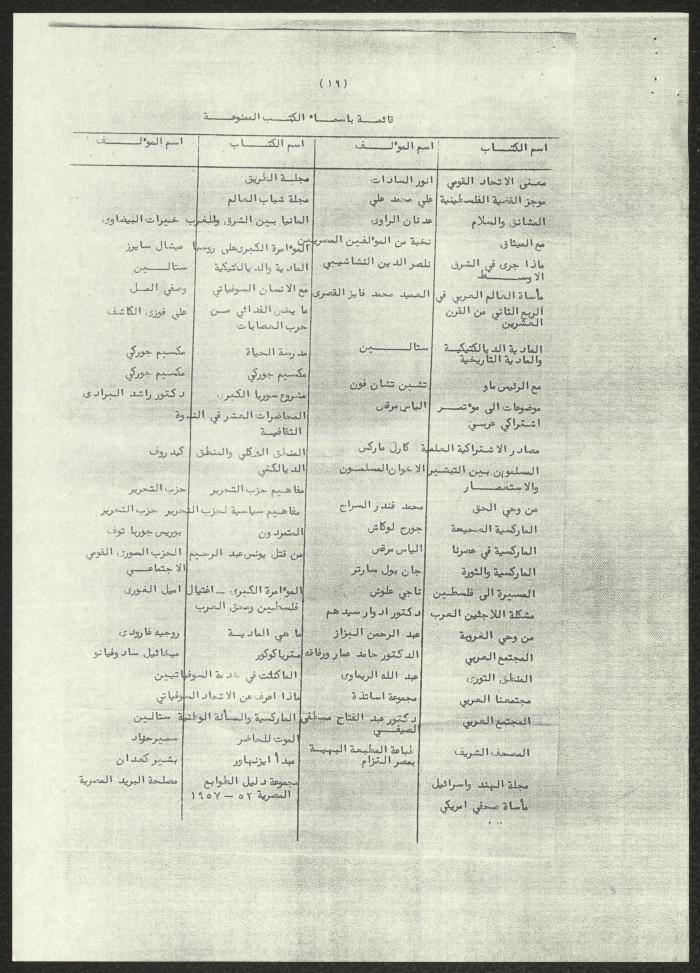 (١٩)
قائمة باسماء الكتب الممنوعة
اسم الكتاب اسم المؤلف اسم الكتاب اسم المؤلف
معنى الاتحاد القومي انور السادات مجلة الطريق
موجز القضية الفلسطينية علي محمد علي مجلة شباب العالم
المشانق والسلام عدنان الراوى المانيا بين الشرق والغرب خيرات البيضاوى
مع الميثاق نخبة من المؤلفين المصريين المؤامرة الكبرى على روسيا ميشال سايرز
ماذا جرى في الشرق ناصر الدين النشاشيبي المادية والديالكتيكية ستالين
الاوسط
مأساة العالم العربي في السيد محمد فايز القصرى مع الانسان السوفياتي وصفي البنا
الربع الثاني من القرن ما يخص الفدائي من علي فوزى الكاشف
العشرين حرب العصابات
المادية الديالكتيكية ستالين مدرسة الحياة مكسيم جوركي
والمادية التاريخية
مكسيم جوركي مكسيم جوركي
مع الرئيس ماو تشين تشان فون مشروع سوريا الكبرى دكتور راشد البراوى
موضوعات الى مؤتمر الياس مرقص المحاضرات العشر في الندوة
اشتراكي عربي الثقافية
مصادر الاشتراكية العلمية كارل ماركس المنطق الشكلي والمنطق كيدروف
المسلمون بين التبشير الاخوان المسلمون الديالكتي
والاستعمار مفاهيم حزب التحرير حزب التحرير
من وحي الحق محمد فندر السراج مفاهيم سياسية لحزب التحرير حزب التحرير
الماركسية الصحيحة جورج لوكاش المتمردون بوريس جورباتوف
الماركسية في عصرنا الياس مرقص من قتل يونس عبد الرحيم الحزب السورى القومي
الماركسية والثورة جان بول سارتر الاجتماعي
المسيرة الى فلسطين ناجي علوش المؤامرة الكبرى - اغتيال اميل الغورى
مشكلة اللاجئين العرب دكتور ادوار سيدهم فلسطين وسحق العرب
من وحي العروبة عبد الرحمن البزاز ما هي المادية روجيه غارودى
المجتمع العربي الدكتور حامد عمار ورفاقه ميخائيل سادوفيانو
المنطق الثورى عبد الله الريماوى الماكنات في خدمة السوفياتيين
مجتمعنا العربي مجموعة اساتذة ماذا اعرف عن الاتحاد السوفياتي
المجتمع العربي دكتور عبد الفتاح مصطفى الماركسية والمسألة الوطنية ستالين
الصيفي الموت للحاضر
المصحف الشريف طباعة المطبعة البهية مبدأ ايزنهاور
بمصر التزام
مجلة الهند واسرائيل مجموعة دليل الطوابع مصلحة البريد المصرية
المصرية ٥٢ - ١٩٥٧
مأساة صحفي امريكي